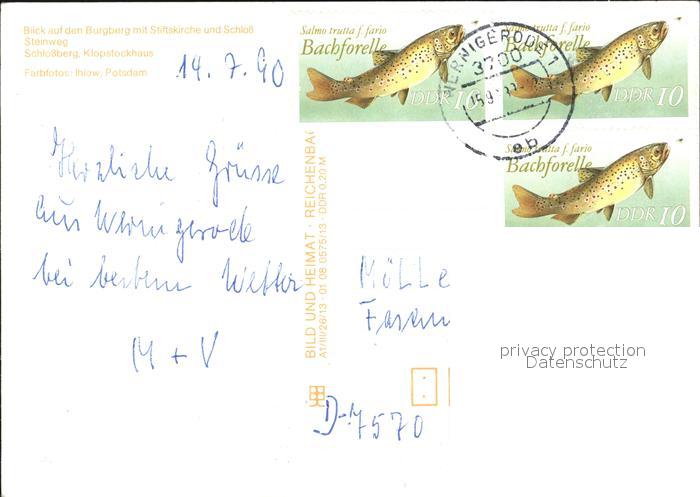 Blick auf den Burgberg mit Stiftskirche und Schloß
Steinweg
Schloßberg, Klopstockhaus
Farbfotos: Ihlow, Potsdam
14. 7. 90
Herzliche Grüsse
aus Wernigerode
bei bestem Wetter
M + V
BILD UND HEIMAT · REICHENBA
A1/III/26/13 · 01 08 0575/13 · DDR 0,20 M
Salmo trutta f. fario
Bachforelle
DDR 10
Salmo trutta f. fario
Bachforelle
DDR 10
WERNIGERODE 1
3700
eb
Salmo trutta f. fario
Bachforelle
DDR 10
Mölle
Fasan
privacy protection
Datenschutz
D-7570